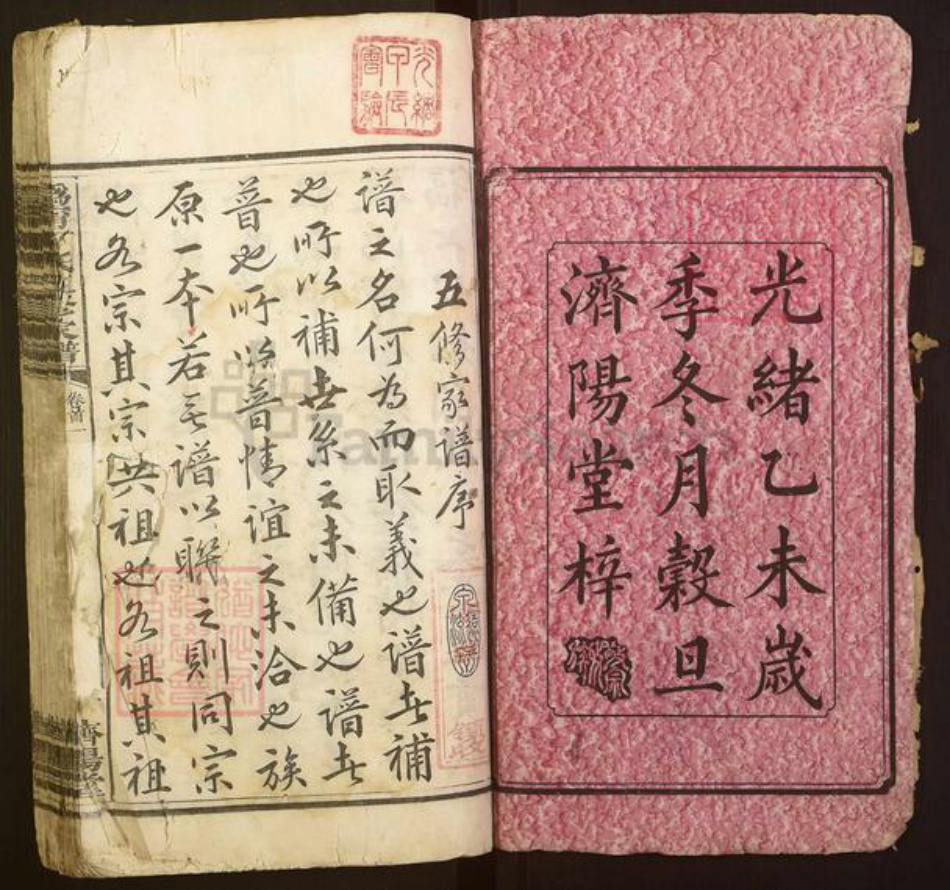 光緒乙未歲
季冬月穀旦
濟陽堂梓
五修家譜序
譜之名何為而取義也譜者補
也所以補世系之未備也譜者
普也所以普情誼之未洽也族
原一本若無譜以聯之則同宗
也各宗其宗共祖也各祖其祖
光緒
甲辰
卷首一
濟陽堂